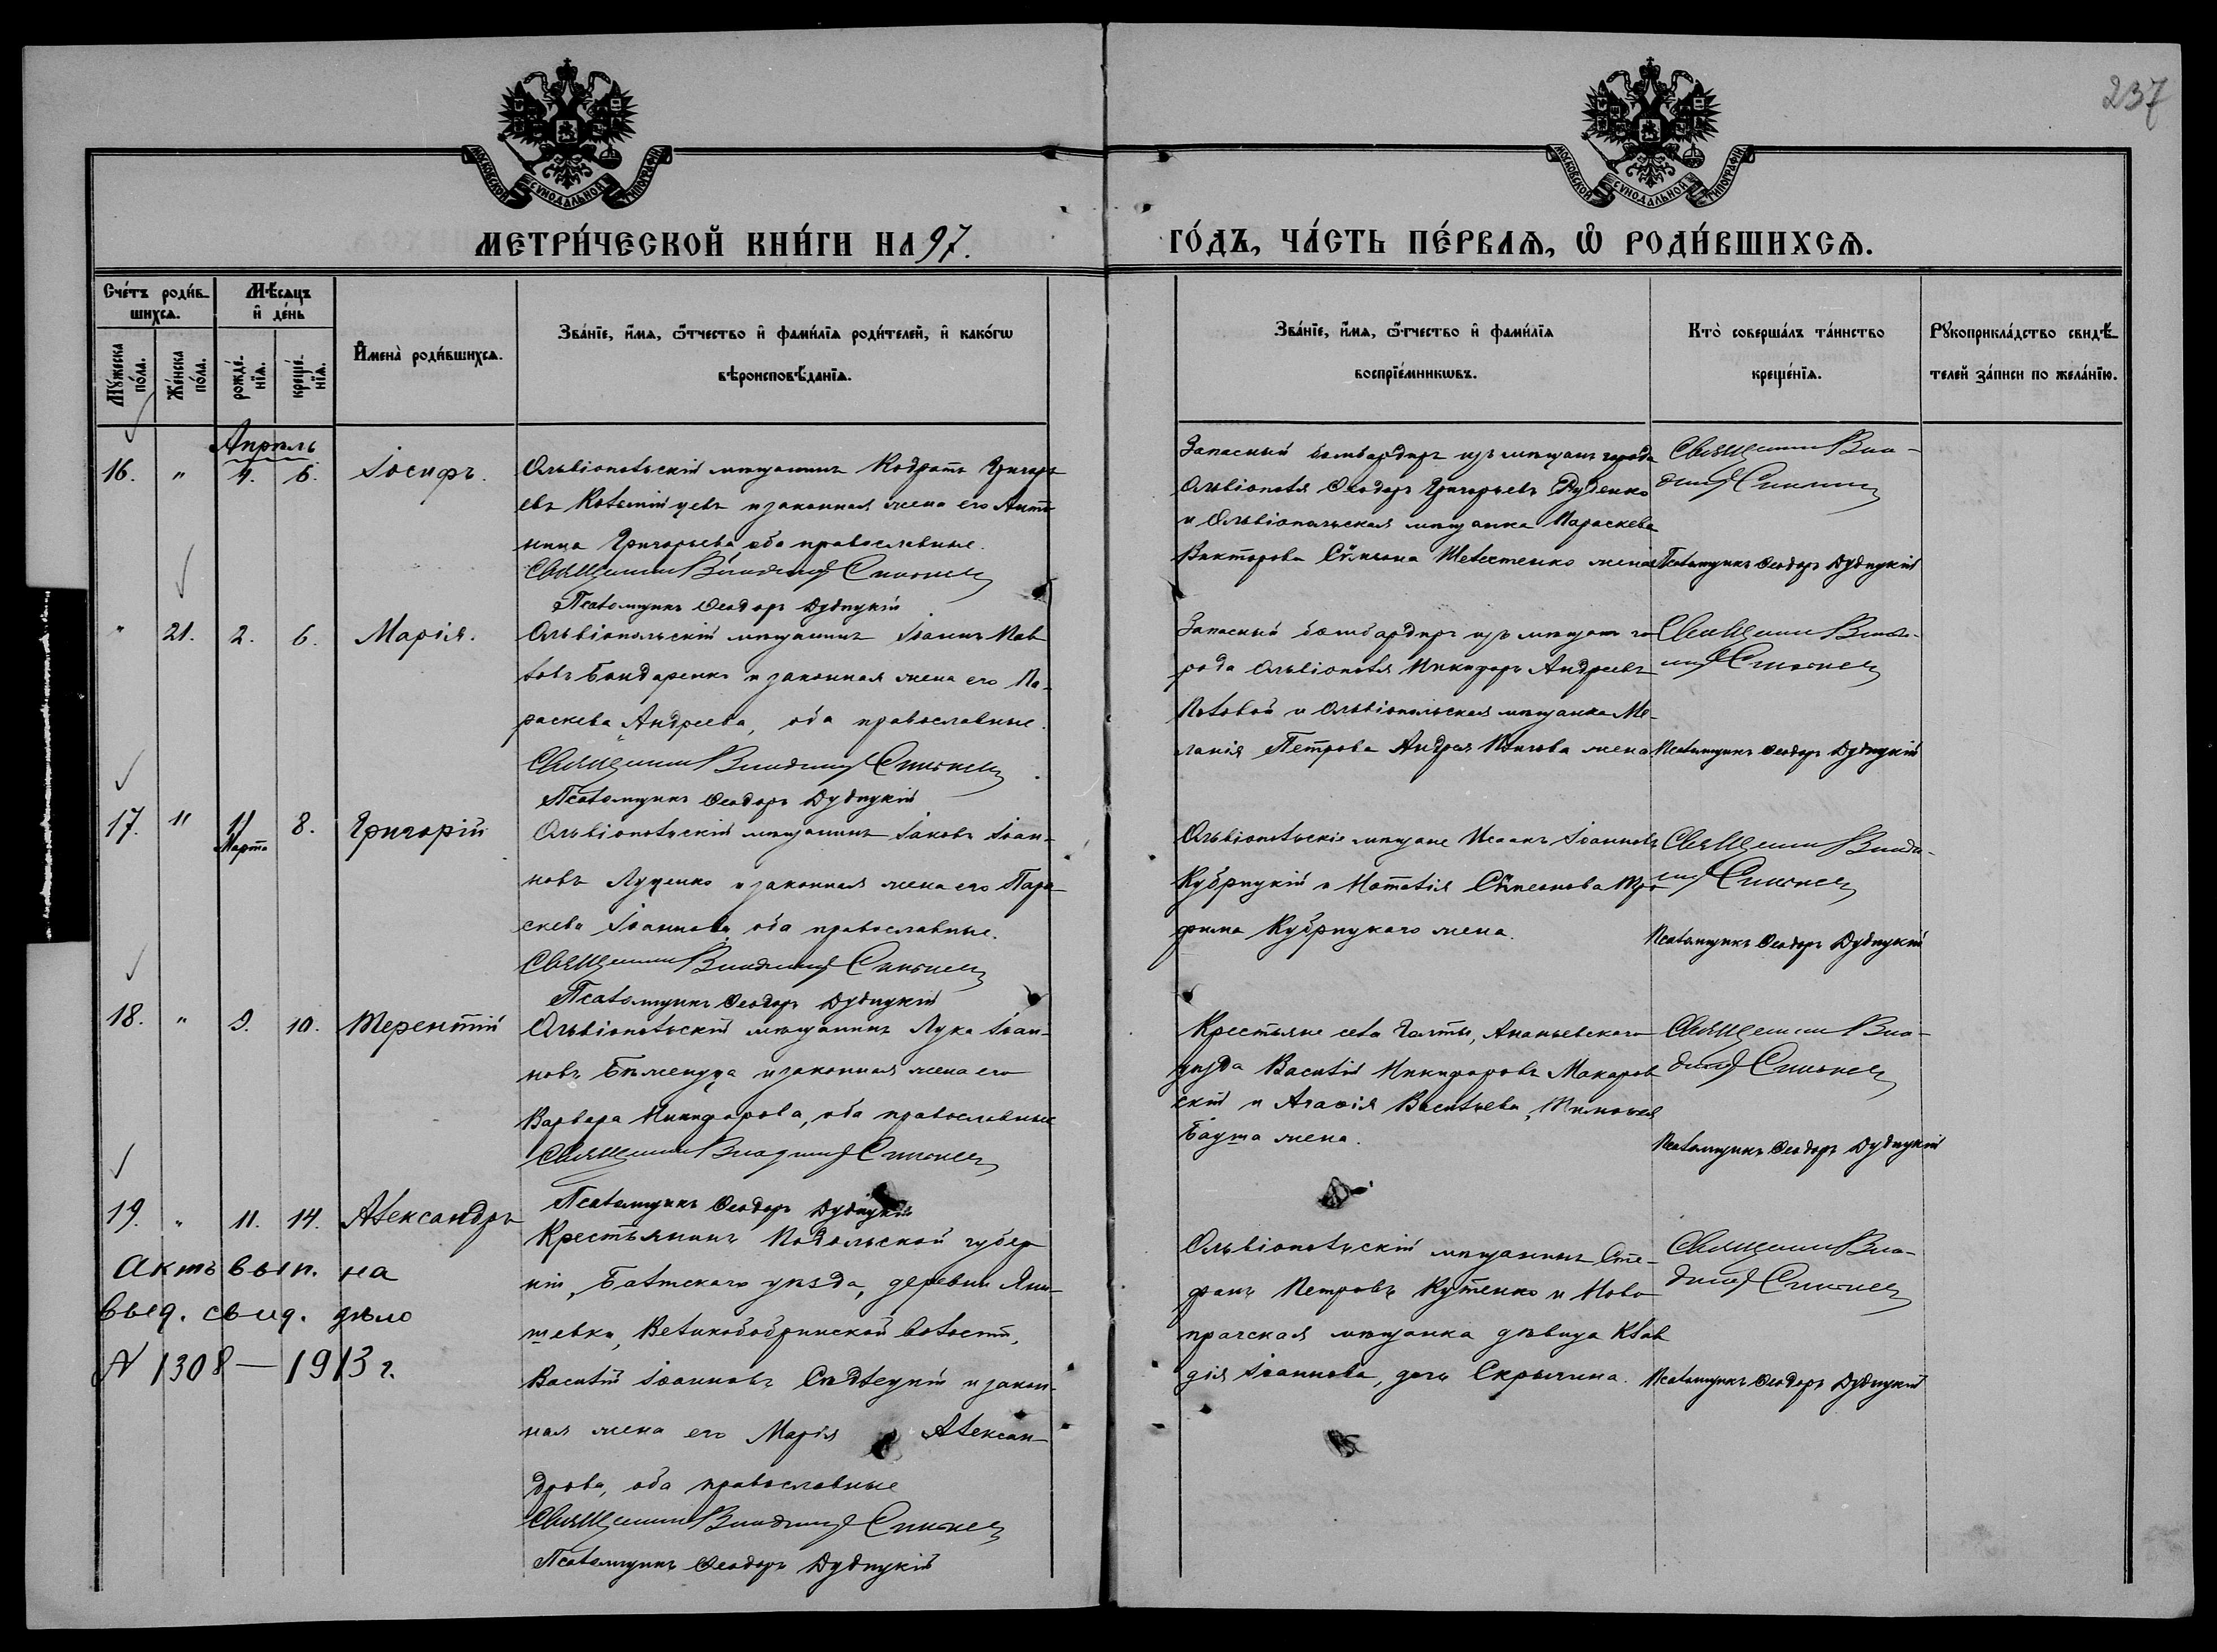 237
МОСКОВСКОЙ СѴНОДАЛЬНОЙ ТИПОГРАФІИ
МОСКОВСКОЙ СѴНОДАЛЬНОЙ ТИПОГРАФІИ
МЕТРИ́ЧЕСКОЙ КНИ́ГИ НА 97.
ГО́ДЪ, ЧА́СТЬ ПЕ́РВАѦ, Ѿ РОДИ́ВШИХСѦ.
Сче́тъ роди́вшихсѧ.
Му́жеска по́ла.
Же́нска по́ла.
Мѣ́сѧцъ и҆ де́нь
рожде́нїѧ.
креще́нїѧ.
И҆мена̀ роди́вшихсѧ.
Зва́нїе, и҆́мѧ, ѻ҆́тчество и҆ фами́лїѧ роди́телей, и҆ како́гѡ
вѣроисповѣ́данїѧ.
Зва́нїе, и҆́мѧ, ѻ҆́тчество и҆ фами́лїѧ
воспрїе́мникѡвъ.
Кто̀ соверша́лъ та́инство
креще́нїѧ.
Рꙋкоприкла́дство свидѣ́-
телей за́писи по жела́нїю.
Апрѣль
16. " 4. 6. Іосифъ.
Ольвіопольскій мѣщанинъ Кодратъ Григорь
евъ и законная жена его
Григорьева, оба православные.
Священникъ Владимір
Псаломщикъ Ѳеодоръ Дубицкій
Запасный бомбардиръ изъ мѣщанъ города
Ольвіополя Ѳеодоръ Григорьевъ Руденко
и Ольвіопольская мѣщанка Параскева
Викторова Сѵмеона Шевченко жена
Священникъ Вла-
димір
Псаломщикъ Ѳеодоръ Дубицкій
" 21. 2. 6. Марія.
Ольвіопольскій мѣщанинъ Іоаннъ Пав
ловъ Бондаренко и законная жена его Па-
раскева Андреева, оба православные.
Священникъ Владимір
Псаломщикъ Ѳеодоръ Дубицкій
Запасный бомбардиръ изъ мѣщанъ го
рода Ольвіополя Никифоръ Андреевъ
и Ольвіопольская мѣщанка Ме-
ланія Петрова Андрея жена
Священникъ
Псаломщикъ Ѳеодоръ Дубицкій
17. " 11 Марта 8. Григорій
Ольвіопольскій мѣщанинъ Іаковъ Іоан-
новъ Луценко и законная жена его Пара-
скева Іоаннова оба православные.
Священникъ Владимір
Псаломщикъ Ѳеодоръ Дубицкій
Ольвіопольскіе мѣщане Исаакъ Іоанновъ
Кубрицкій и Наталія Сѵмеонова Тро
фима Кубрицкаго жена.
Священникъ
Псаломщикъ Ѳеодоръ Дубицкій
18. " 9. 10. Терентій
Ольвіопольскій мѣщанинъ Лука Іоан-
новъ и законная жена его
Варвара Никифорова, оба православные
Священникъ Владимір
Псаломщикъ Ѳеодоръ Дубицкій
Крестьяне села Голты, Ананьевскаго
уѣзда Василій Никифоровъ Макаров
скій и Агаѳія Васильева, Тимоѳея
жена.
Священникъ Вла-
димір
Псаломщикъ Ѳеодоръ Дубицкій
19. " 11. 14. Александръ
Крестьянинъ Подольской губер
ніи, Балтскаго уѣзда, деревни
Великобобринской волости,
Василій Іоанновъ и закон-
ная жена его Марія Алексан-
дрова, оба православные
Священникъ Владимір
Псаломщикъ Ѳеодоръ Дубицкій
Ольвіопольскій мѣщанинъ Сте-
фанъ Петровъ Куценко и Ново
мѣщанка дѣвица Клав
дія Іоаннова, дочь
Священникъ Вла-
димір
Псаломщикъ Ѳеодоръ Дубицкій
Актъ вып. на
выд. свид. дѣло
№ 1308 — 1913 г.